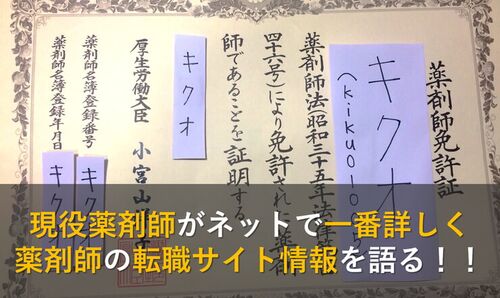 薬剤師免許証
キクオ
薬剤師法昭和三十五年法律
四十六号)により免許された薬剤
師であることを証明する
キクオ
厚生労働大臣 小宮山
薬剤師名簿登録番号
キクオ
薬剤師名簿登録年月日
キクオ
現役薬剤師がネットで一番詳しく
薬剤師の転職サイト情報を語る！！